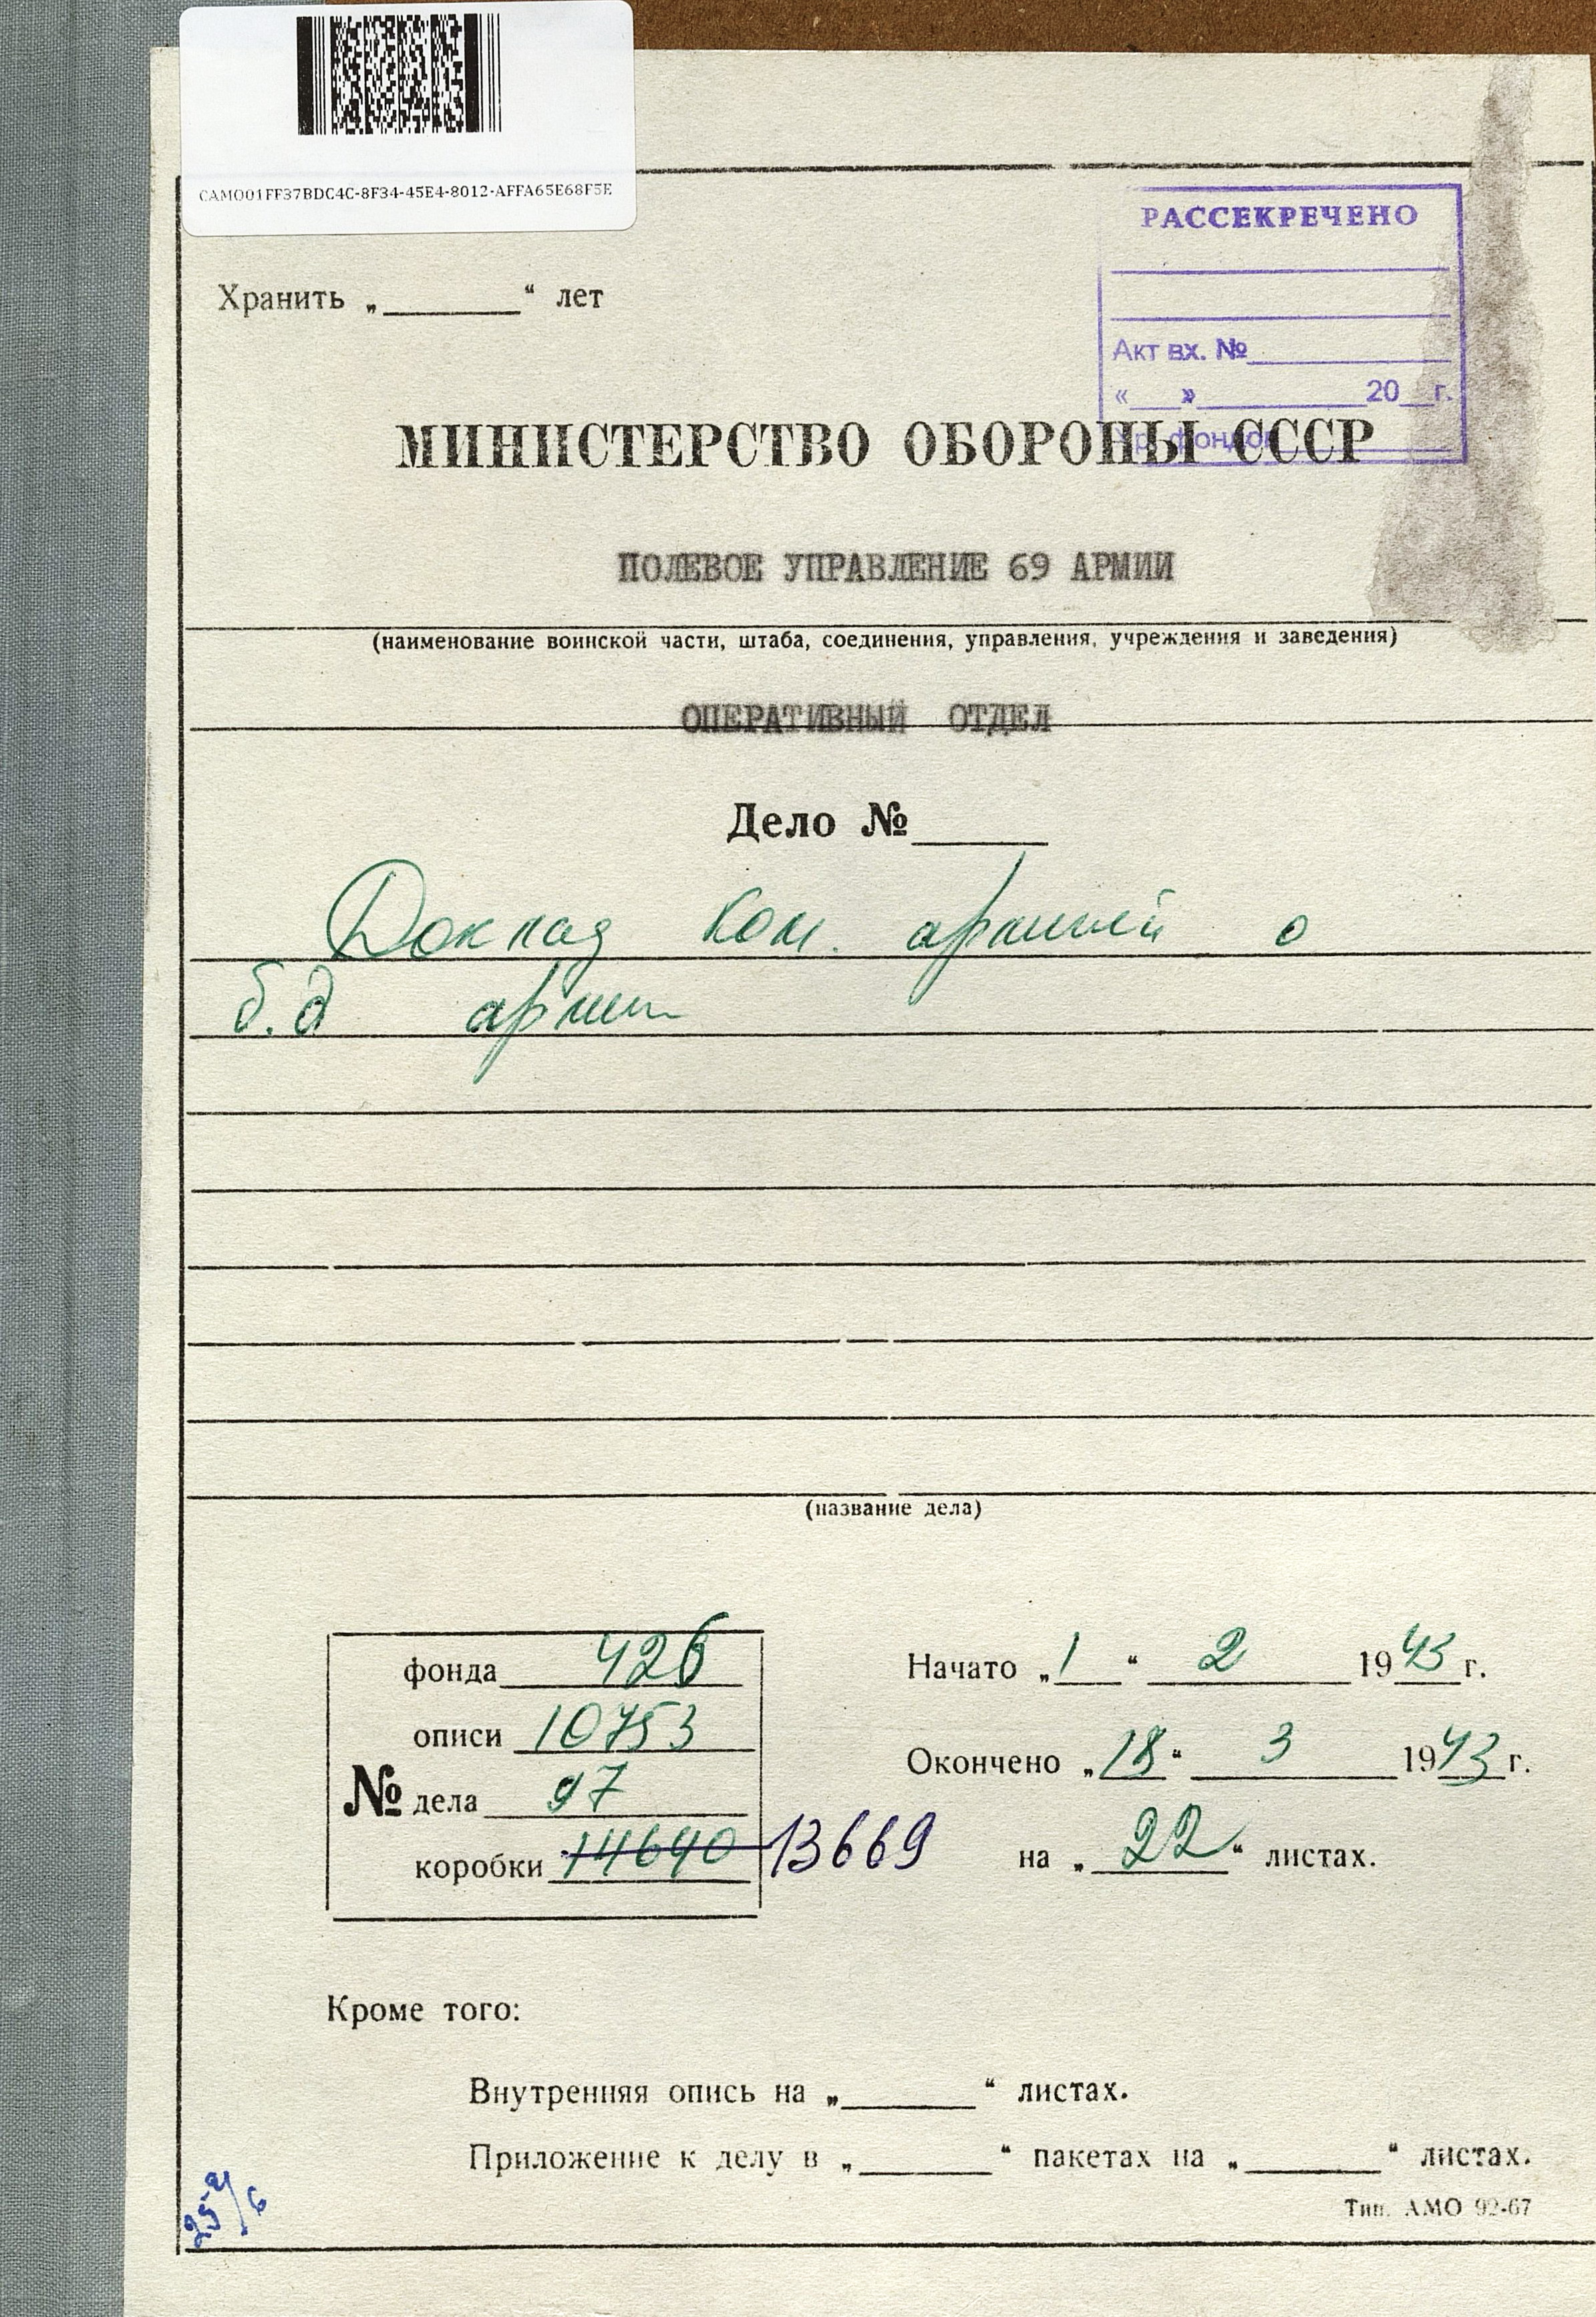 CAMO01FF37BDC4C-8F34-45E4-8012-AFFA65E68F5E
РАССЕКРЕЧЕНО
Акт вх. №
« » 20 г.
Хранить „ “ лет
МИНИСТЕРСТВО ОБОРОНЫ СССР
ПОЛЕВОЕ УПРАВЛЕНИЕ 69 АРМИИ
(наименование воинской части, штаба, соединения, управления, учреждения и заведения)
ОПЕРАТИВНЫЙ ОТДЕЛ
Дело №
Доклад Ком. армией о
б.д армии
(название дела)
фонда 426
описи 10753
№ дела 97
коробки 14640 13669
Начато „1“ 2 1943 г.
Окончено „18“ 3 1943 г.
на „22“ листах.
Кроме того:
Внутренняя опись на „ “ листах.
Приложение к делу в „ “ пакетах на „ “ листах.
Тип. АМО 92-67